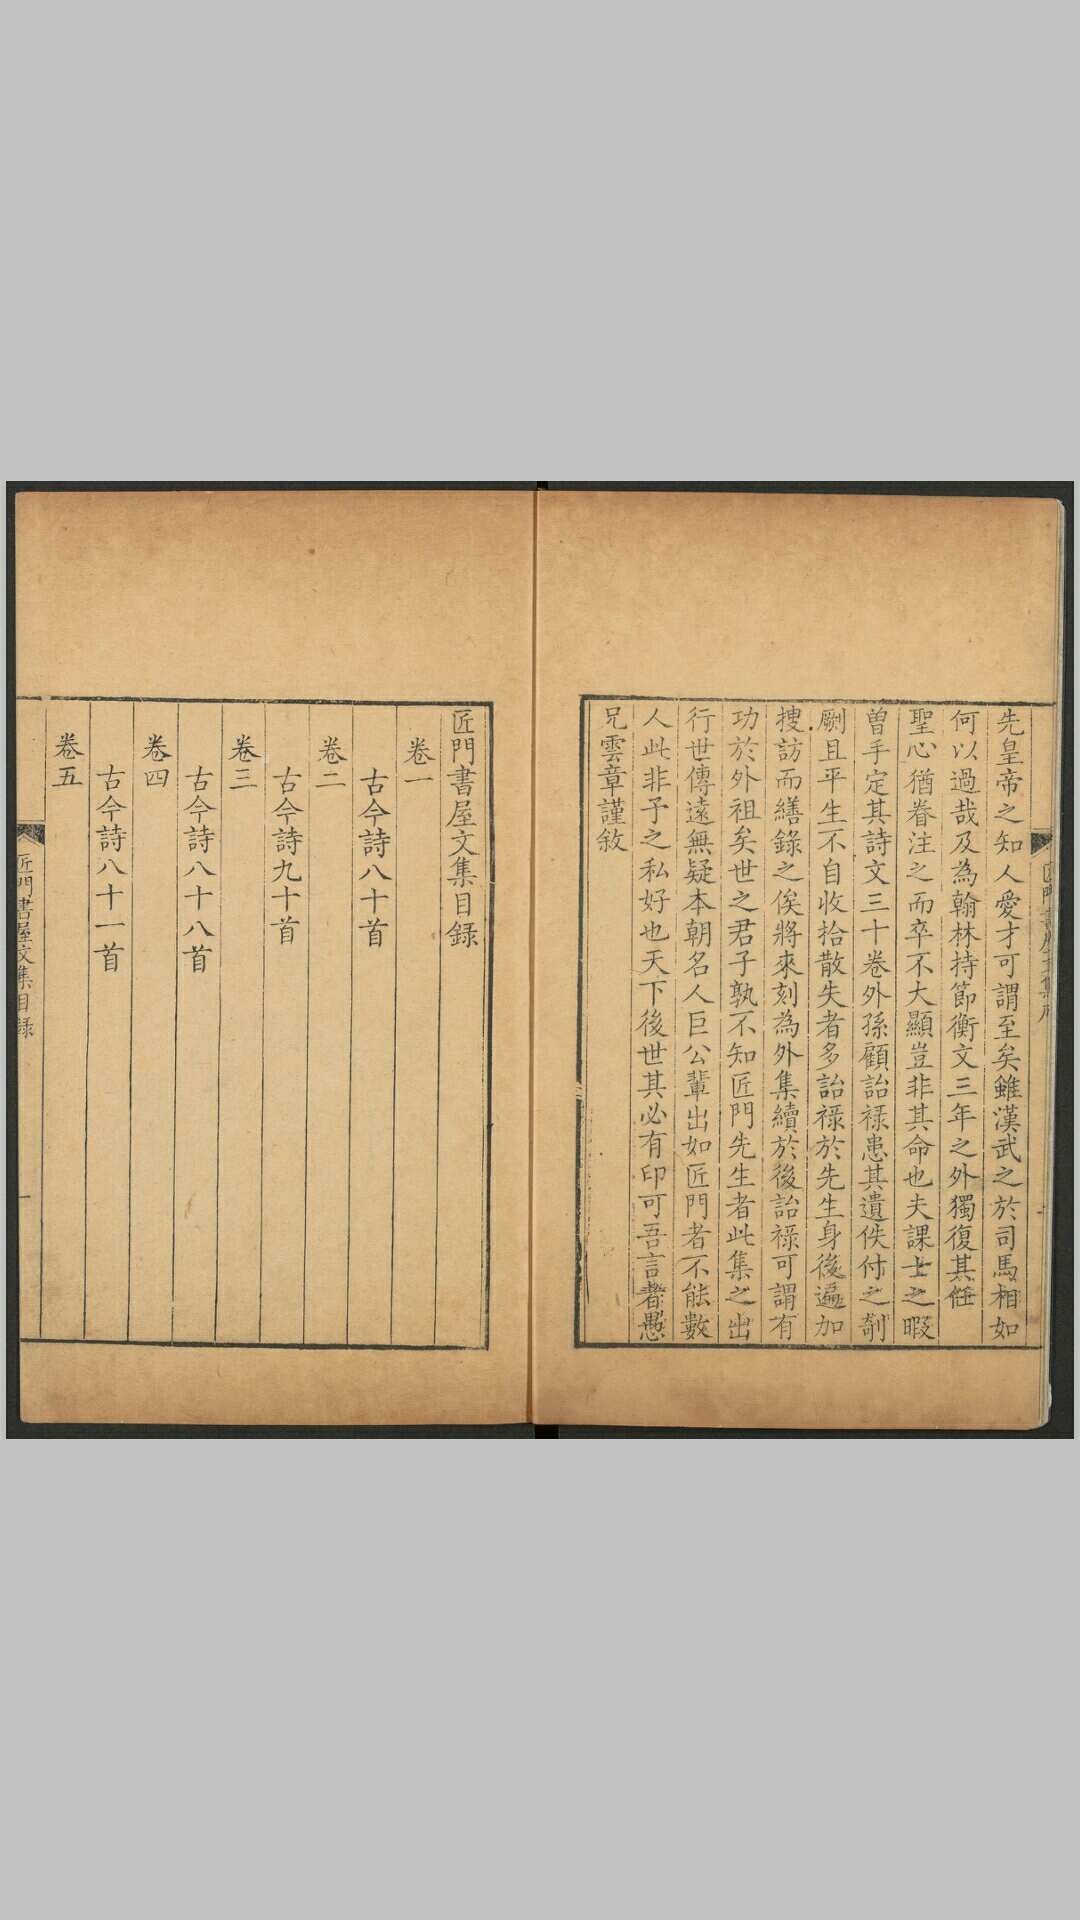 先皇帝之知人愛才可謂至矣雖漢武之於司馬相如
何以過哉及為翰林持節衡文三年之外獨復其任
聖心猶眷注之而卒不大顯豈非其命也夫課士之暇
曾手定其詩文三十卷外孫顧詒祿患其遺佚付之剞
劂且平生不自收拾散失者多詒祿於先生身後遍加
搜訪而繕錄之俟將來刻為外集續於後詒祿可謂有
功於外祖矣世之君子孰不知匠門先生者此集之出
行世傳遠無疑本朝名人巨公輩出如匠門者不能數
人此非予之私好也天下後世其必有印可吾言者愚
兄雲章謹敘
匠門書屋文集目録
卷一
古今詩八十首
卷二
古今詩九十首
卷三
古今詩八十八首
卷四
古今詩八十一首
卷五
匠門書屋文集目録
一